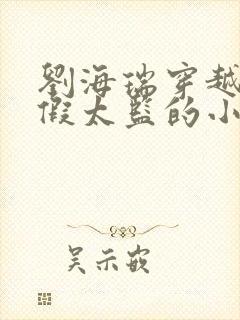 劉海瑞穿越
假太監的小
吴示嵌